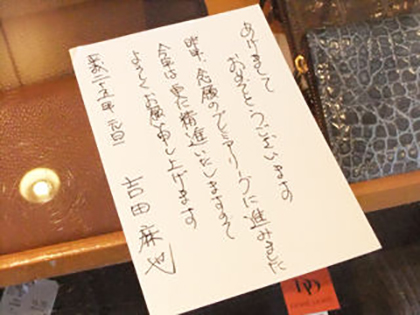 あけまして
おめでとうございます
昨年、念願のプレミアリーグに進みました
今年は更に精進いたしますので
よろしくお願い申し上げます
平成二十五年 元旦
吉田麻也